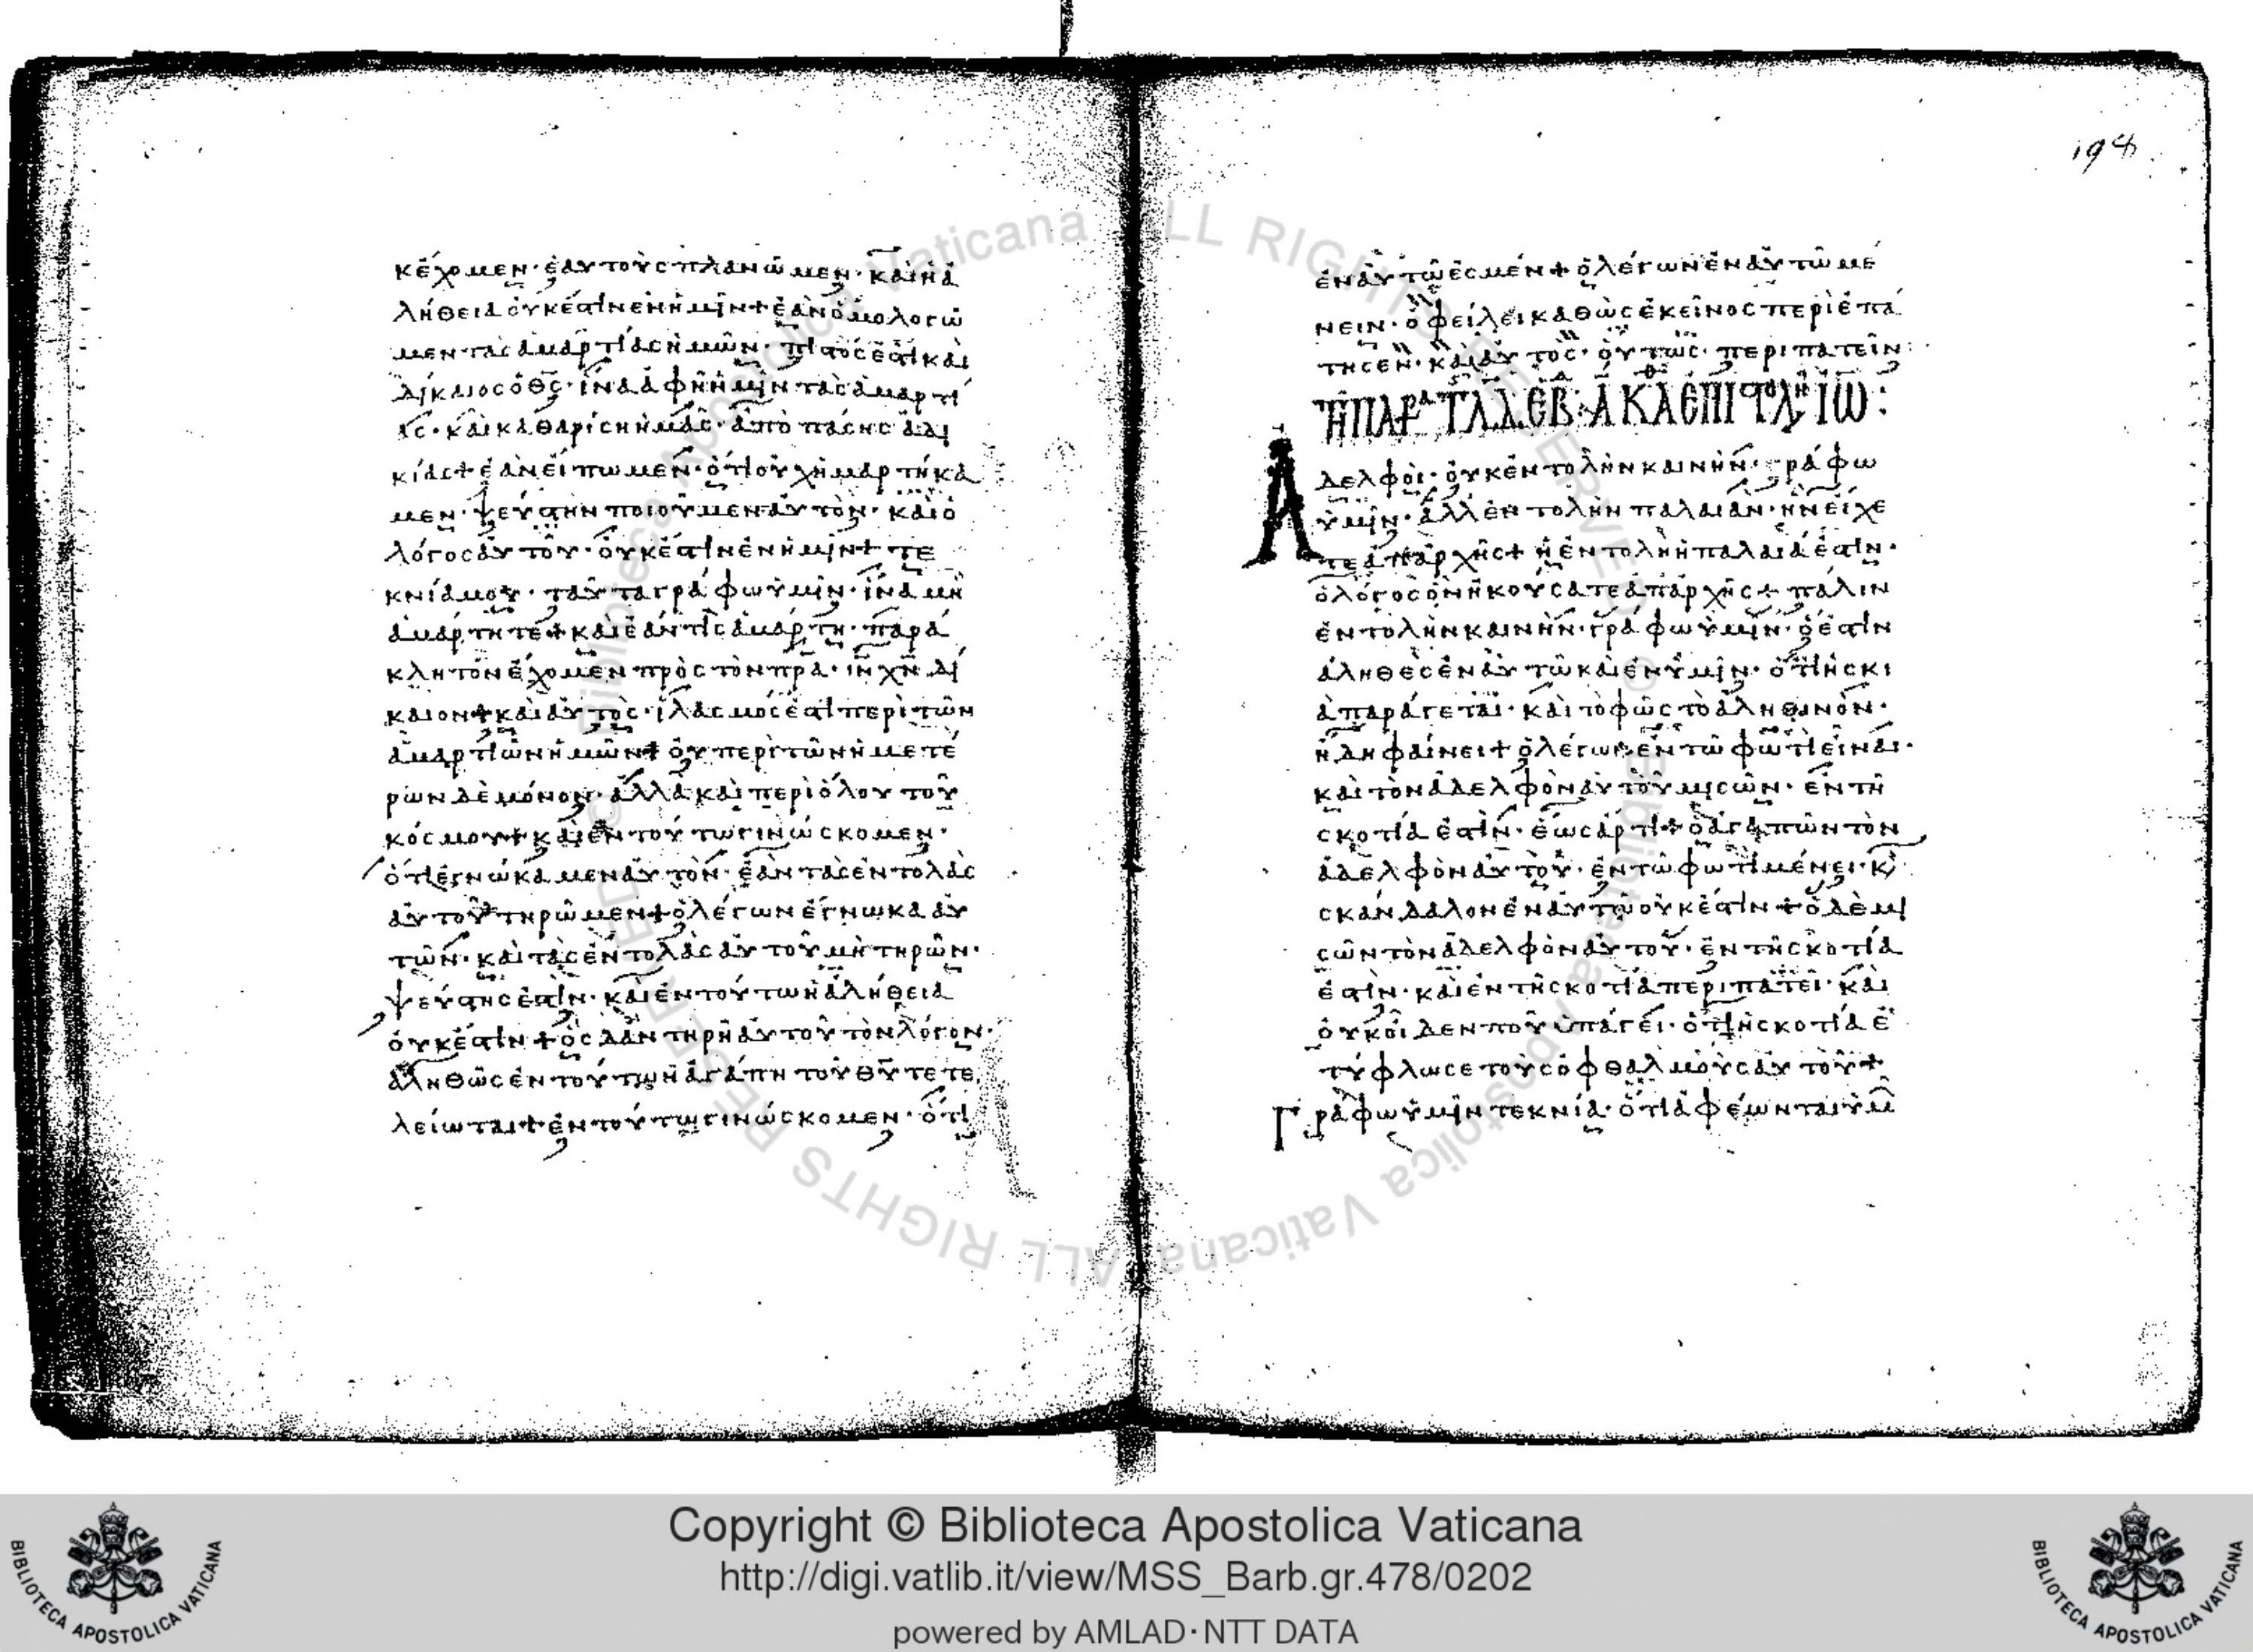 κἔχομεν· ἑαυτοὺς πλανῶμεν· καὶ ἡ ἀ
λήθεια οὐκ ἔστιν ἐν ἡμῖν + ἐὰν ὁμολογῶ
μεν τὰς ἁμαρτίας ἡμῶν· πιστός ἐστι καὶ
δίκαιος ὁ θς· ἵνα ἀφῆ ἡμῖν τὰς ἁμαρτί
ας· καὶ καθαρίση ἡμᾶς· ἀπὸ πάσης ἀδι
κίας + ἐὰν εἴπωμεν· ὅτι οὐχ ἡμαρτήκα
μεν· ψεύστην ποιοῦμεν αὐτὸν· καὶ ὁ
λόγος αὐτοῦ· οὐκ ἔστιν ἐν ἡμῖν + τε
κνία μου· ταῦτα γράφω ὑμῖν· ἵνα μὴ
ἁμάρτητε + καὶ ἐάν τις ἁμάρτη· παρά
κλητον ἔχομεν πρὸς τὸν πρα· ιν χν δί
καιον + καὶ αὐτὸς· ἱλασμός ἐστι περὶ τῶν
ἁμαρτιῶν ἡμῶν + οὐ περὶ τῶν ἡμετέ
ρων δὲ μόνον· ἀλλὰ καὶ περὶ ὅλου τοῦ
κόσμου + καὶ ἐν τούτω γινώσκομεν·
ὅτι ἐγνώκαμεν αὐτὸν· ἐὰν τὰς ἐντολὰς
αὐτοῦ τηρῶμεν + ὁ λέγων ἔγνωκα αὐ
τῶν· καὶ τὰς ἐντολὰς αὐτοῦ μὴ τηρῶν·
ψεύστης ἐστὶν· καὶ ἐν τούτω ἡ ἀλήθεια
οὐκ ἔστιν + ὃς δὰν τηρῆ αὐτοῦ τὸν λόγον·
ἀληθῶς ἐν τούτω ἡ ἀγάπη τοῦ θυ τετε
λείωται + ἐν τούτω γινώσκομεν· ὅτι
198
ἐν αὐτῶ ἐσμέν + ὁ λέγων ἐν αὐτῶ μέ
νειν· ὀφείλει καθὼς ἐκεῖνος περιεπά
τησεν· καὶ αὐτὸς· οὕτως· περιπατεῖν·
Α
δελφοὶ· οὐκ ἐντολὴν καινὴν· γράφω
ὑμῖν· ἀλλ' ἐντολὴν παλαιὰν· ἣν εἴχε
τε ἀπαρχῆς + ἡ ἐντολὴ ἡ παλαιά ἐστιν·
ὁ λόγος ὃν ἠκούσατε ἀπαρχῆς + πάλιν
ἐντολὴν καινὴν· γράφω ὑμῖν· ὅ ἐστιν
ἀληθὲς ἐν αὐτῶ καὶ ἐν ὑμῖν· ὅτι ἡ σκι
ὰ παράγεται· καὶ τὸ φῶς τὸ ἀληθινὸν·
ἤδη φαίνει + ὁ λέγων ἐν τῶ φωτὶ εἶναι·
καὶ τὸν ἀδελφὸν αὐτοῦ μισῶν· ἐν τῆ
σκοτία ἐστὶν· ἕως ἄρτι + ὁ ἀγαπῶν τὸν
ἀδελφὸν αὐτοῦ· ἐν τῶ φωτὶ μένει· κ
σκάνδαλον ἐν αὐτῶ οὐκ ἔστιν + ὁ δὲ μι
σῶν τὸν ἀδελφὸν αὐτοῦ· ἐν τῆ σκοτία
ἐστὶν· καὶ ἐν τῆ σκοτία περιπατεῖ· καὶ
οὐκ οἶδεν ποῦ ὑπάγει· ὅτι ἡ σκοτία ἐ
τύφλωσε τοὺς ὀφθαλμοὺς αὐτοῦ +
Γράφω ὑμῖν τεκνία· ὅτι ἀφέωνται ὑμ
Copyright © Biblioteca Apostolica Vaticana
http://digi.vatlib.it/view/MSS_Barb.gr.478/0202
powered by AMLAD·NTT DATA
BIBLIOTECA APOSTOLICA VATICANA
BIBLIOTECA APOSTOLICA VATICANA